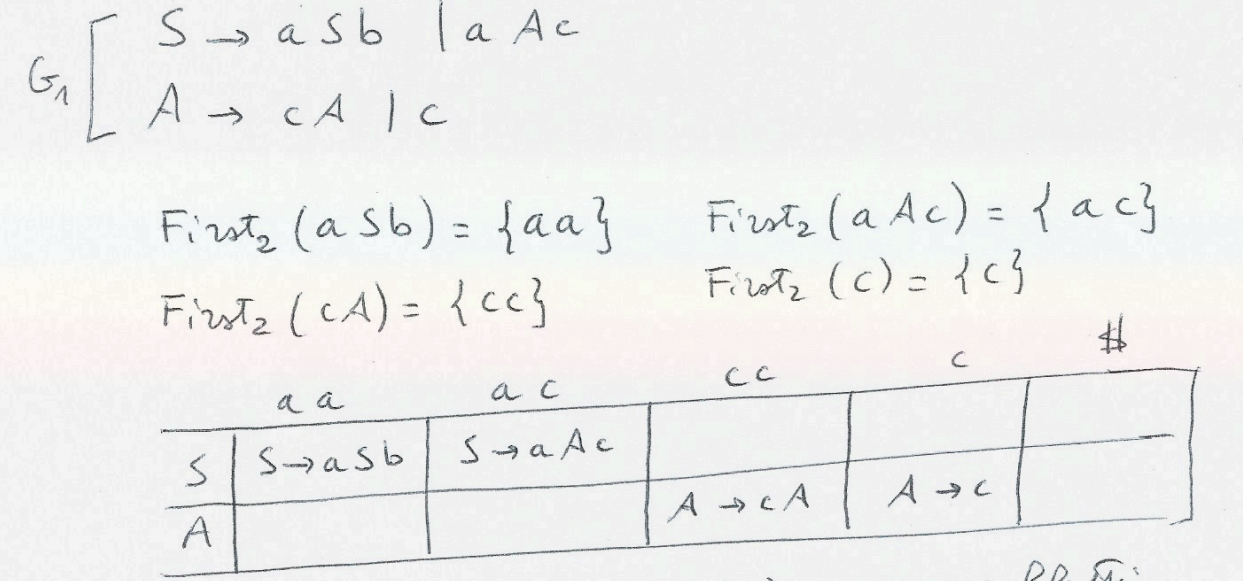 G₁ S → aSb | aAc
A → cA | c
First₂(aSb) = {aa} First₂(aAc) = {ac}
First₂(cA) = {cc} First₂(c) = {c}
aa ac cc c #
S S→aSb S→aAc
A A→cA A→c